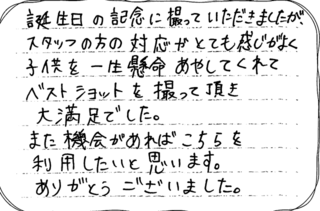 誕生日の記念に撮っていただきましたが
スタッフの方の対応がとても感じがよく
子供を一生懸命あやしてくれて
ベストショットを撮って頂き
大満足でした。
また機会があればこちらを
利用したいと思います。
ありがとうございました。